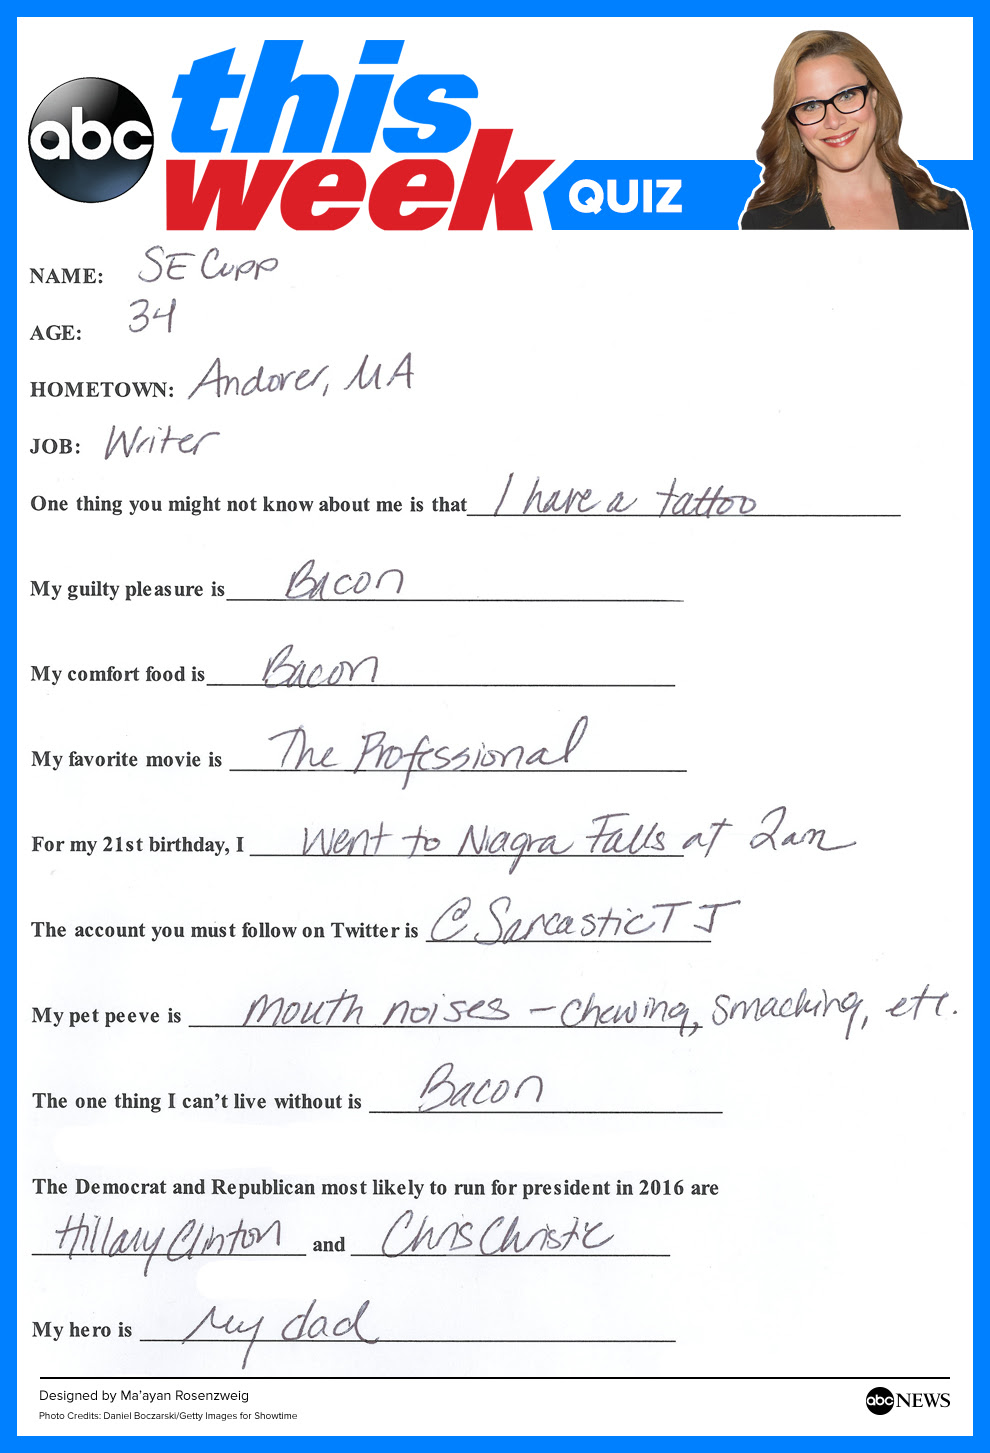 abc this
week QUIZ
NAME: SE Cupp
AGE: 34
HOMETOWN: Andover, MA
JOB: Writer
One thing you might not know about me is that I have a tattoo
My guilty pleasure is Bacon
My comfort food is Bacon
My favorite movie is The Professional
For my 21st birthday, I went to Niagra Falls at 2am
The account you must follow on Twitter is @SarcasticTJ
My pet peeve is mouth noises - chewing, smacking, etc.
The one thing I can't live without is Bacon
The Democrat and Republican most likely to run for president in 2016 are
Hillary Clinton and Chris Christie
My hero is my dad
Designed by Ma'ayan Rosenzweig
Photo Credits: Daniel Boczarski/Getty Images for Showtime
abc NEWS